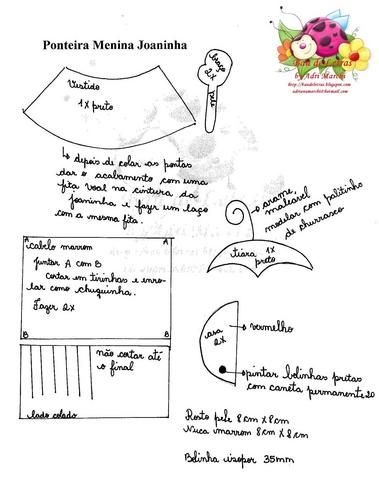 Ponteira Menina Joaninha
Baú de Letras
by Adri Marchi
http://baudeletras.blogspot.com
Vestido
1x preto
braço
2x
pele
depois de colar as pontas
dar o acabamento com uma
fita voal na cintura da
joaninha e fazer um laço
com a mesma fita.
arame
maleável
modelar com palitinho
de churrasco
tiara 1x
preto
A A
cabelo marrom
juntar A com B
cortar em tirinhas e enro-
lar como chuquinha.
Fazer 2x
B B
não cortar até
o final
lado colado
asa
2x
vermelho
pintar bolinhas pretas
com caneta permanente 2.0
Rosto pele 8cm X 8cm
Nuca marrom 8cm X 8cm
Bolinha isopor 35mm